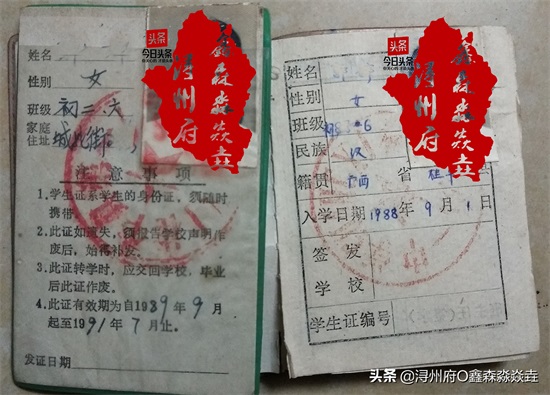 姓名
性别 女
班级 初二.六
家庭
住址 城北街
注意事项
1.学生证系学生的身份证，须随时
携带
2.此证如遗失，须报告学校声明作
废后，始得补发。
3.此证转学时，应交回学校，毕业
后此证作废。
4.此证有效期为自1989年9月
起至1991年7月止.
发证日期
头条
今日头条
浔州府
鑫森淼焱垚
姓名
性别 女
班级 6
民族 汉
籍贯 广西 省 桂平 县
入学日期 1988年9月1日
签发
学校
学生证编号
头条
浔州府
鑫森淼焱垚
头条 @浔州府O鑫森淼焱垚